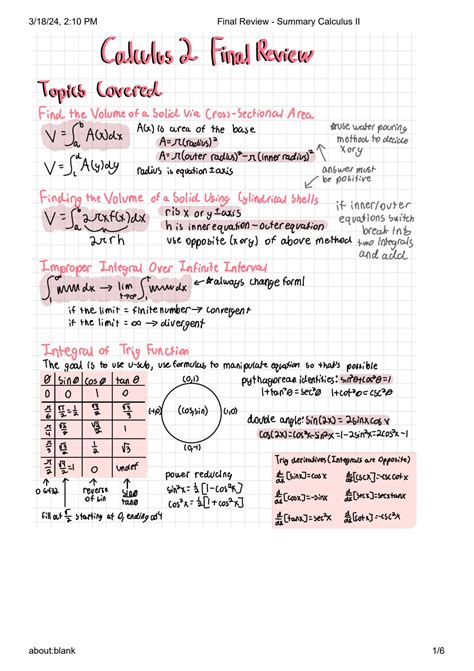 3/18/24, 2:10 PM Final Review - Summary Calculus II
Calculus 2 Final Review
Topics Covered
Find the Volume of a Solid via Cross-Sectional Area
V = ∫ₐᵇ A(x)dx
A(x) is area of the base
A = π(radius)²
A = π(outer radius)² - π(inner radius)²
radius is equation ⊥ axis
V = ∫ A(y)dy
*use water pouring
method to decide
x or y
answer must
be positive
Finding the Volume of a Solid Using Cylindrical Shells
V = ∫ₐᵇ 2πxf(x)dx
2πrh
r is x or y ⊥ axis
h is inner equation - outer equation
use opposite (x or y) of above method
if inner/outer
equations switch
break into
two integrals
and add
Improper Integral Over Infinite Interval
dx → lim
t→∞
dx ← *always change form!
if the limit = finite number → convergent
if the limit = ∞ → divergent
Integral of Trig Function
The goal is to use u-sub, use formulas to manipulate equation so that's possible
θ sin θ cos θ tan θ
0 0 1 0
π/2 =1 0 undef
(0,1)
(cos, sin) (1,0)
(0,-1)
pythagorean identities: sin²θ+cos²θ=1
1+tan²θ=sec²θ 1+cot²θ=csc²θ
double angle: sin(2x) = 2sinx cosx
cos(2x)=cos²x-sin²x=1-2sin²x=2cos²x-1
power reducing
sin²x = ½[1-cos2x]
cos²x = ½[1+cos2x]
Trig derivatives (Integrals are Opposite)
d/dx [sinx]=cosx d/dx [cscx]=-cscxcotx
d/dx [cosx]=-sinx d/dx [secx]=secxtanx
d/dx [tanx]=sec²x d/dx [cotx]=-csc²x
reverse
of sin
starting at 0, ending at 4
about:blank 1/6